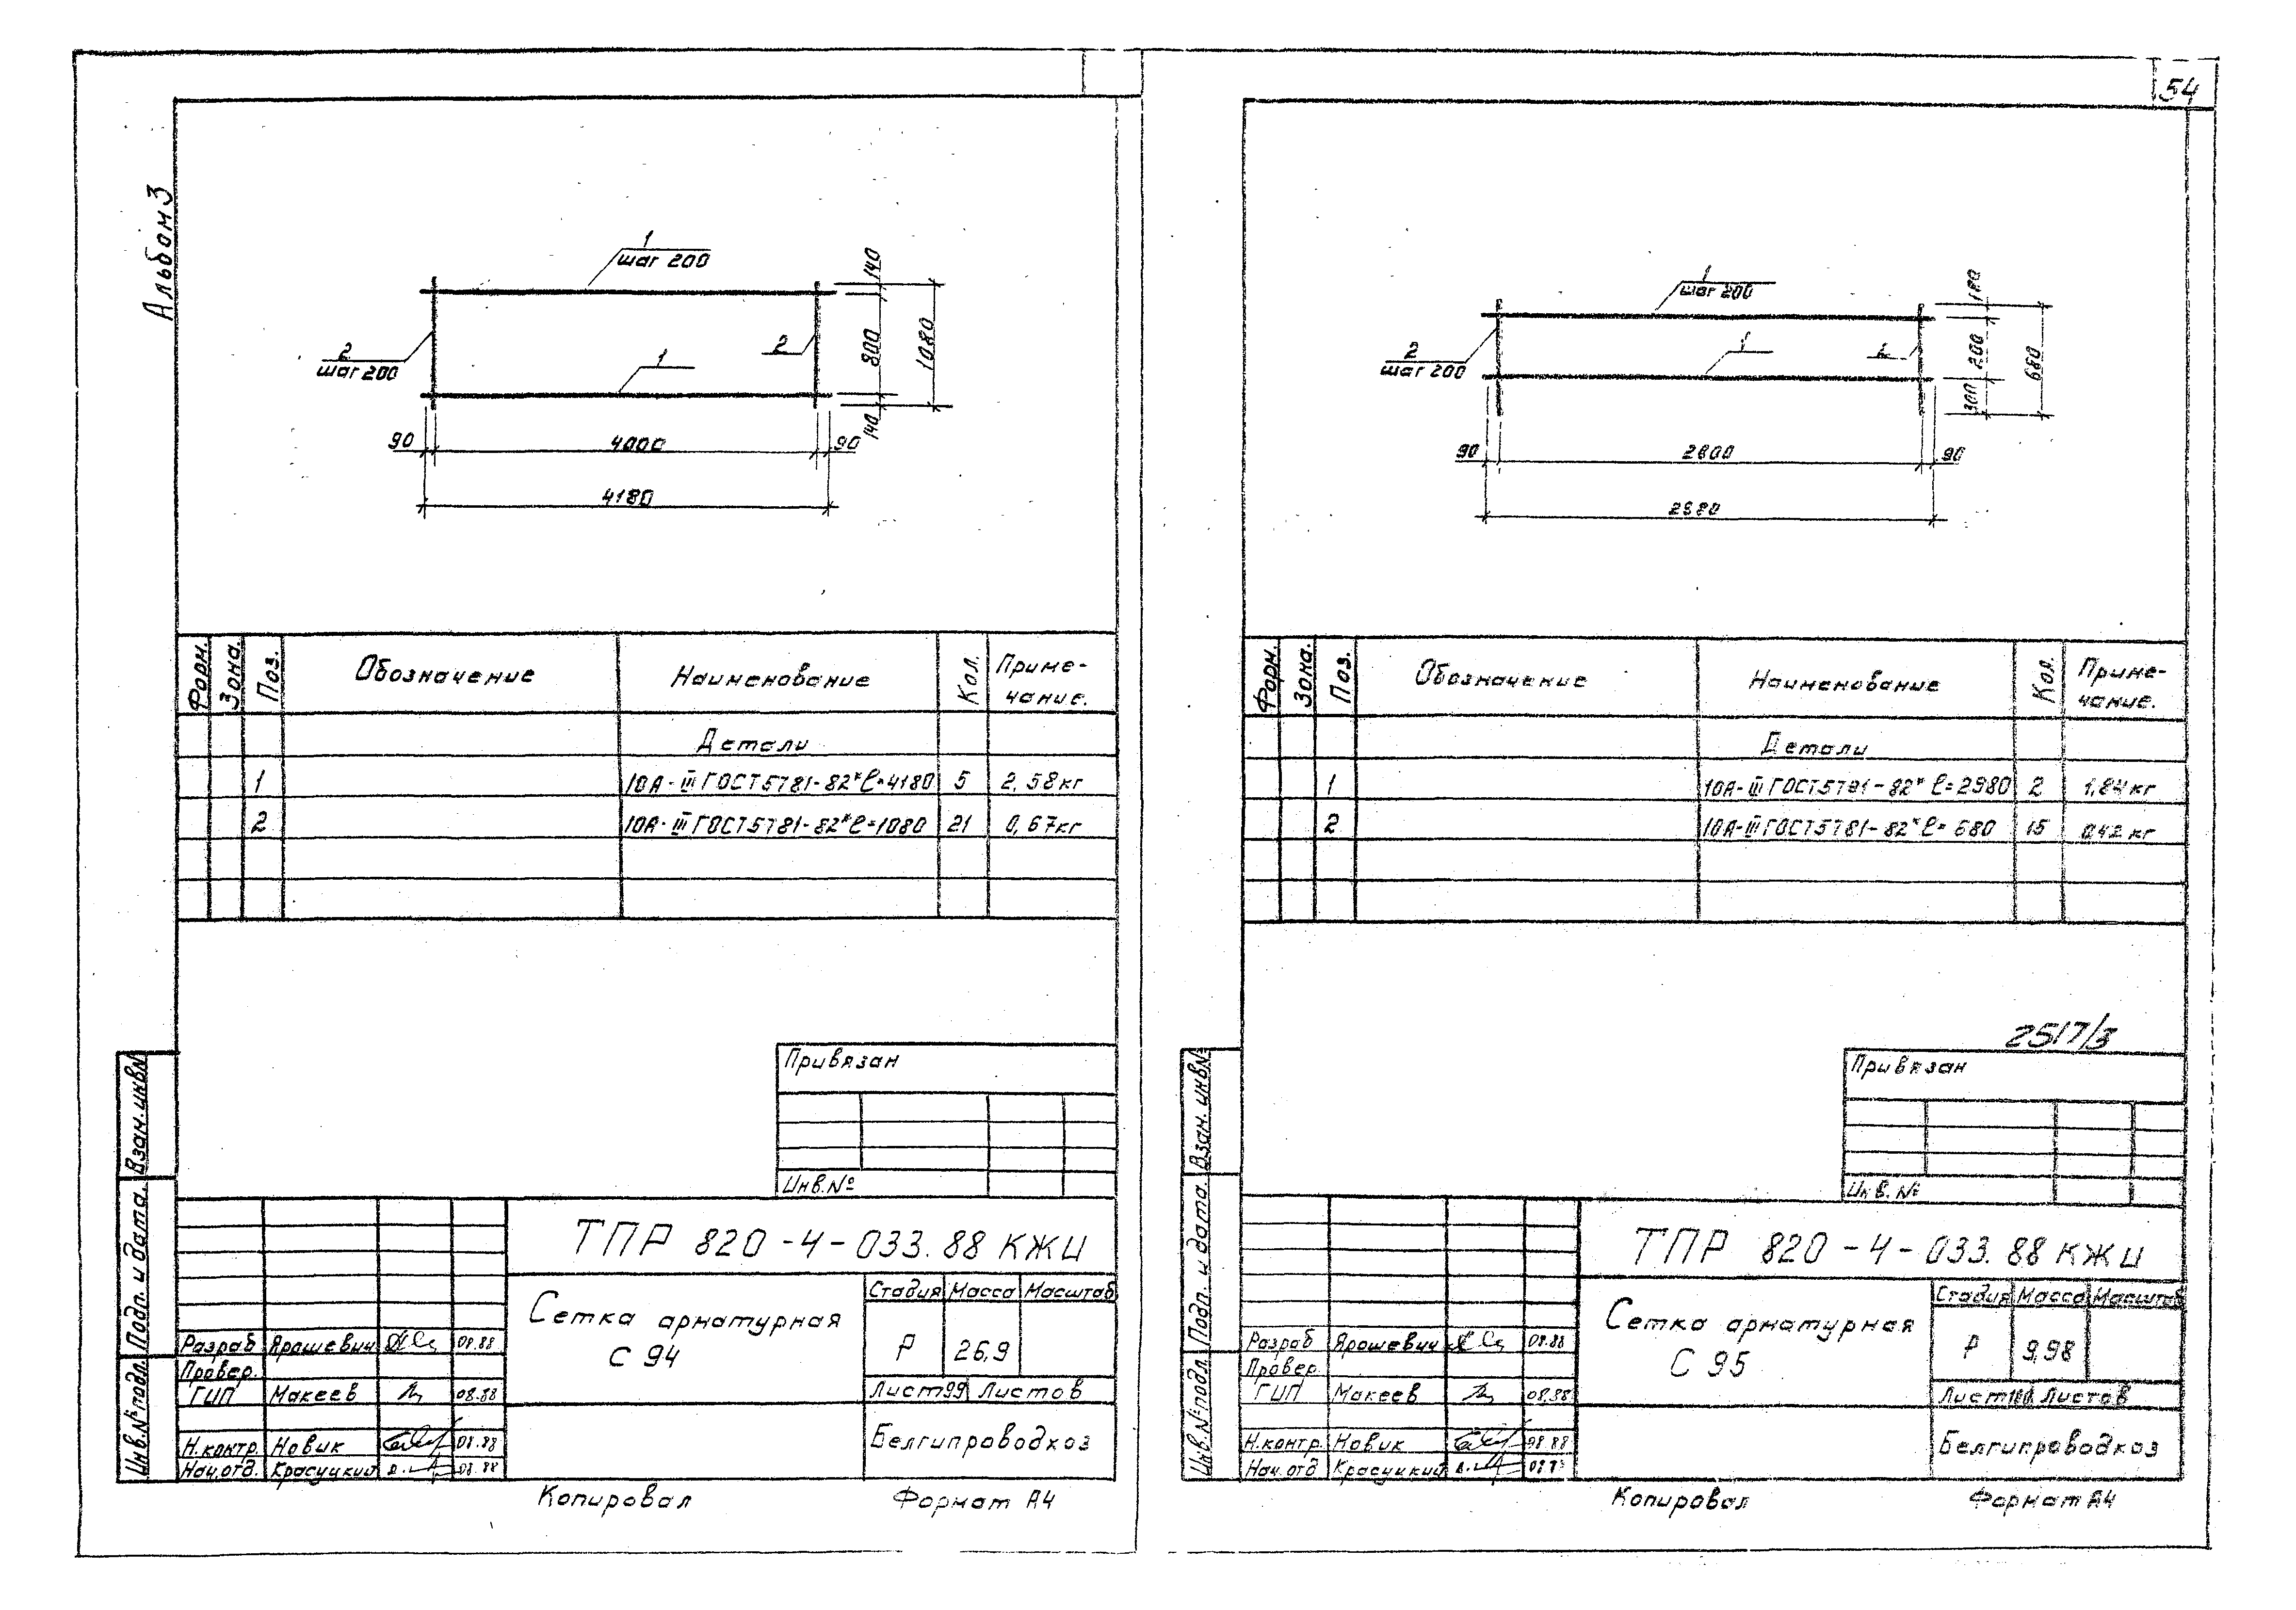 Альбом 3
1
шаг 200
2
шаг 200
1
2
140
800
140
1080
90
4000
90
4180
Форм.
Зона.
Поз.
Обозначение
Наименование
Кол.
Приме-
чание.
Детали
1 10А-III ГОСТ 5781-82* ℓ=4180 5 2,58кг
2 10А-III ГОСТ 5781-82* ℓ=1080 21 0,67кг
Привязан
Инв.№
ТПР 820-4-033.88 КЖИ
Сетка арматурная
С 94
Стадия Масса Масштаб
Р 26,9
Лист 99 Листов
Белгипроводхоз
Разраб Ярошевич 08.88
Провер.
ГИП Макеев 08.88
Н.контр. Новик 08.88
Нач.отд. Красуцкий 08.88
Взам.инв№
Подп. и дата.
Инв.№подл.
Копировал Формат А4
54
1
шаг 200
2
шаг 200
1
2
180
200
300
680
90
2800
90
2980
Форм.
Зона.
Поз.
Обозначение
Наименование
Кол.
Приме-
чание.
Детали
1 10А-III ГОСТ 5781-82* ℓ=2980 2 1,84кг
2 10А-III ГОСТ 5781-82* ℓ=680 15 0,42кг
2517/3
Привязан
Инв.№
ТПР 820-4-033.88 КЖИ
Сетка арматурная
С 95
Стадия Масса Масштаб
Р 9,98
Лист 100 Листов
Белгипроводхоз
Разраб Ярошевич 08.88
Провер.
ГИП Макеев 08.88
Н.контр. Новик 08.88
Нач.отд Красуцкий
Взам.инв№
Подп. и дата.
Инв.№подл.
Копировал Формат А4